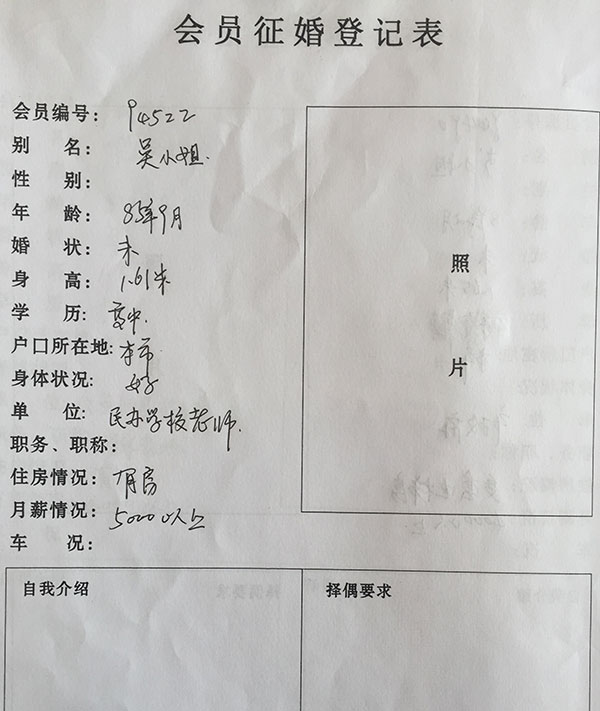 会员征婚登记表
会员编号: 94522
别 名: 吴小姐.
性 别:
年 龄: 85年9月
婚 状: 未
身 高: 1.61米
学 历: 高中.
户口所在地: 本市
身体状况: 好
单 位: 民办学校老师.
职务、职称:
住房情况: 有房
月薪情况: 5000以上
车 况:
照
片
自我介绍
择偶要求